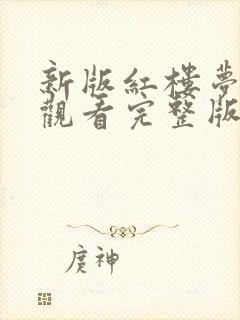 新版紅樓夢
觀看完整版
庹神